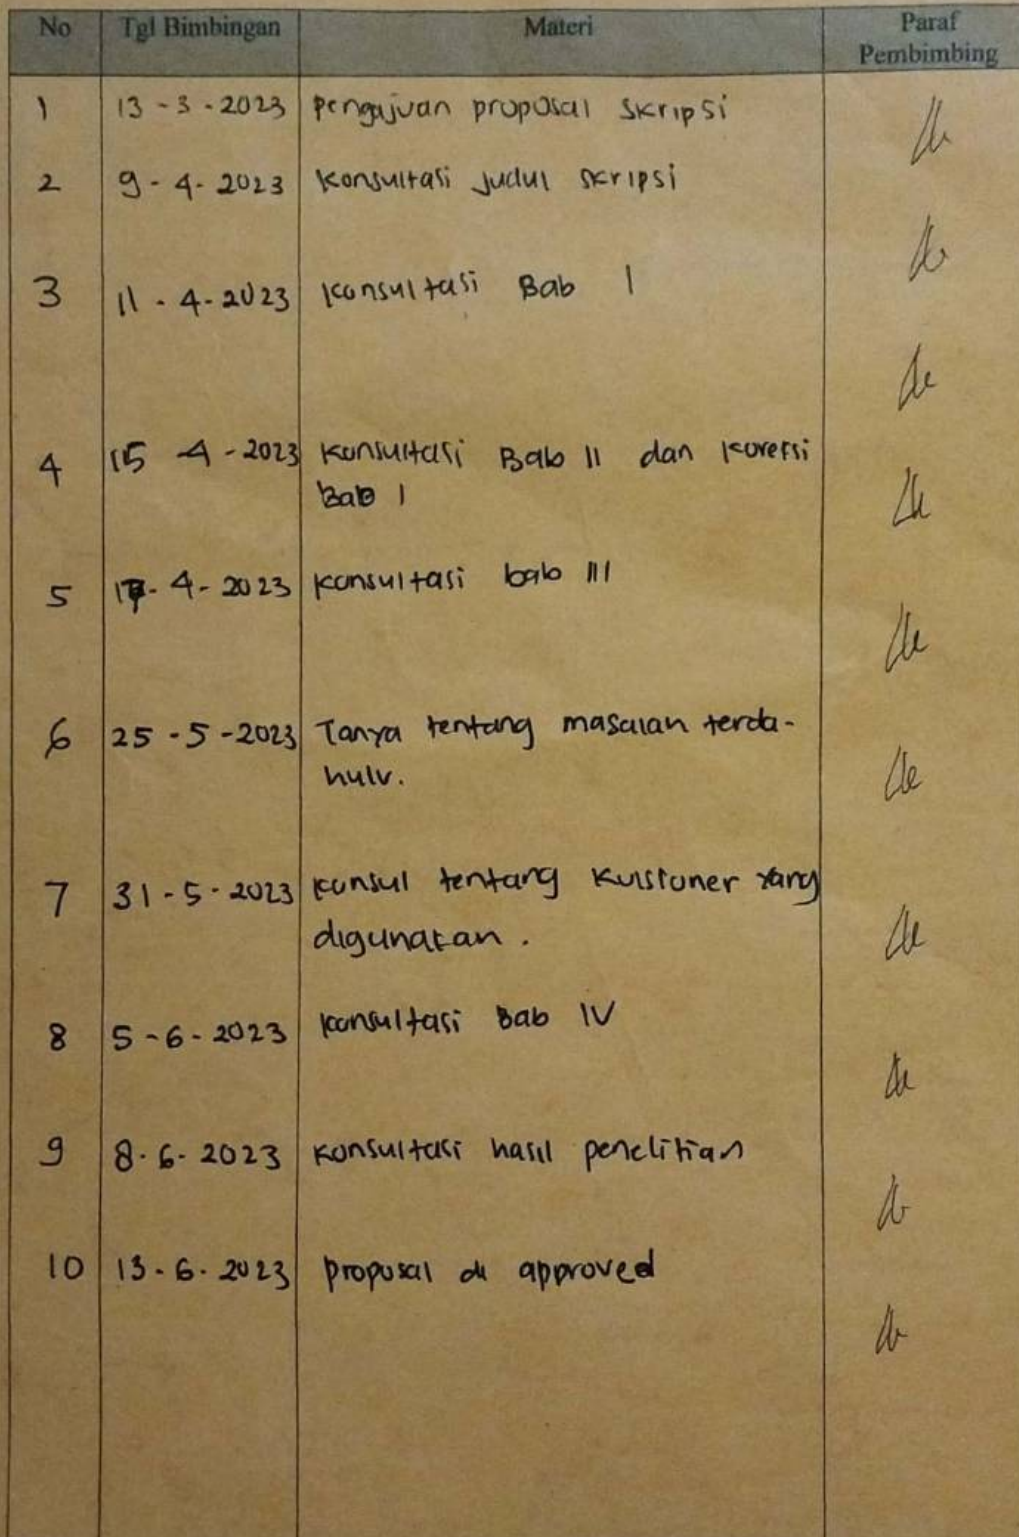 No Tgl Bimbingan Materi Paraf
Pembimbing
1 13-3-2023 Pengajuan proposal skripsi
2 9-4-2023 Konsultasi judul skripsi
3 11-4-2023 Konsultasi Bab I
4 15 4-2023 Konsultasi Bab II dan koreksi
Bab I
5 17-4-2023 Konsultasi bab III
6 25-5-2023 Tanya tentang masalah terda-
hulu.
7 31-5-2023 Konsul tentang Kuisioner yang
digunakan.
8 5-6-2023 Konsultasi Bab IV
9 8-6-2023 Konsultasi hasil penelitian
10 13-6-2023 proposal di approved